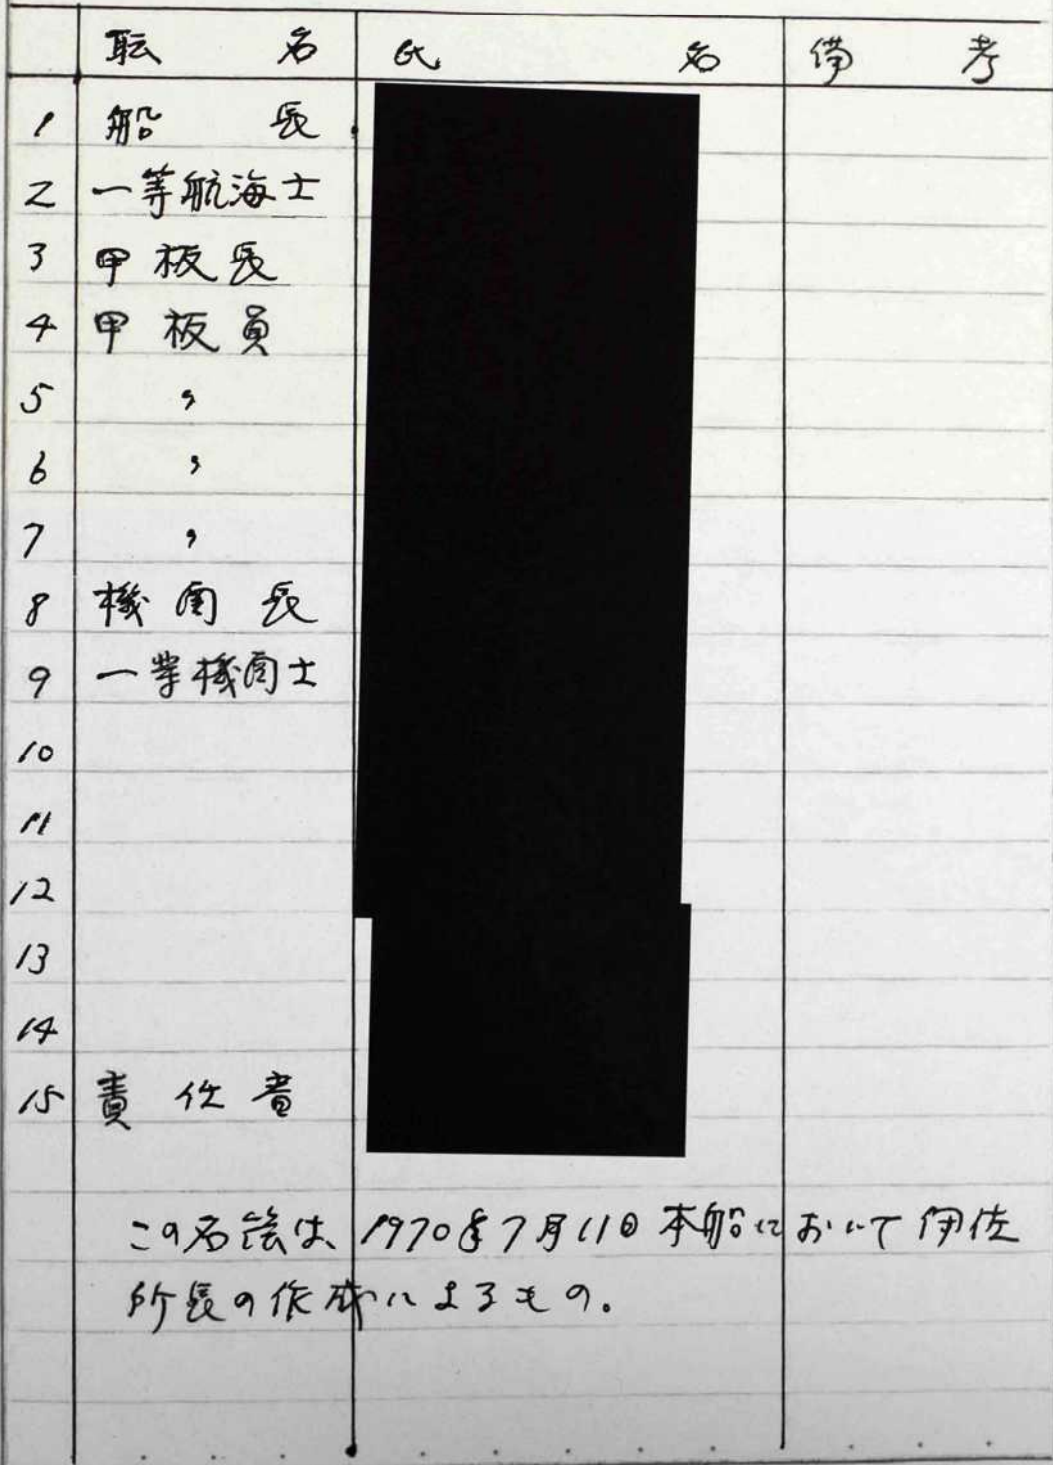 職名 氏名 備考
1 船長
2 一等航海士
3 甲板長
4 甲板員
5 〃
6 〃
7 〃
8 機関長
9 一等機関士
10
11
12
13
14
15 責任者
この名簿は、1970年7月11日本船において伊佐
所長の作成によるもの。